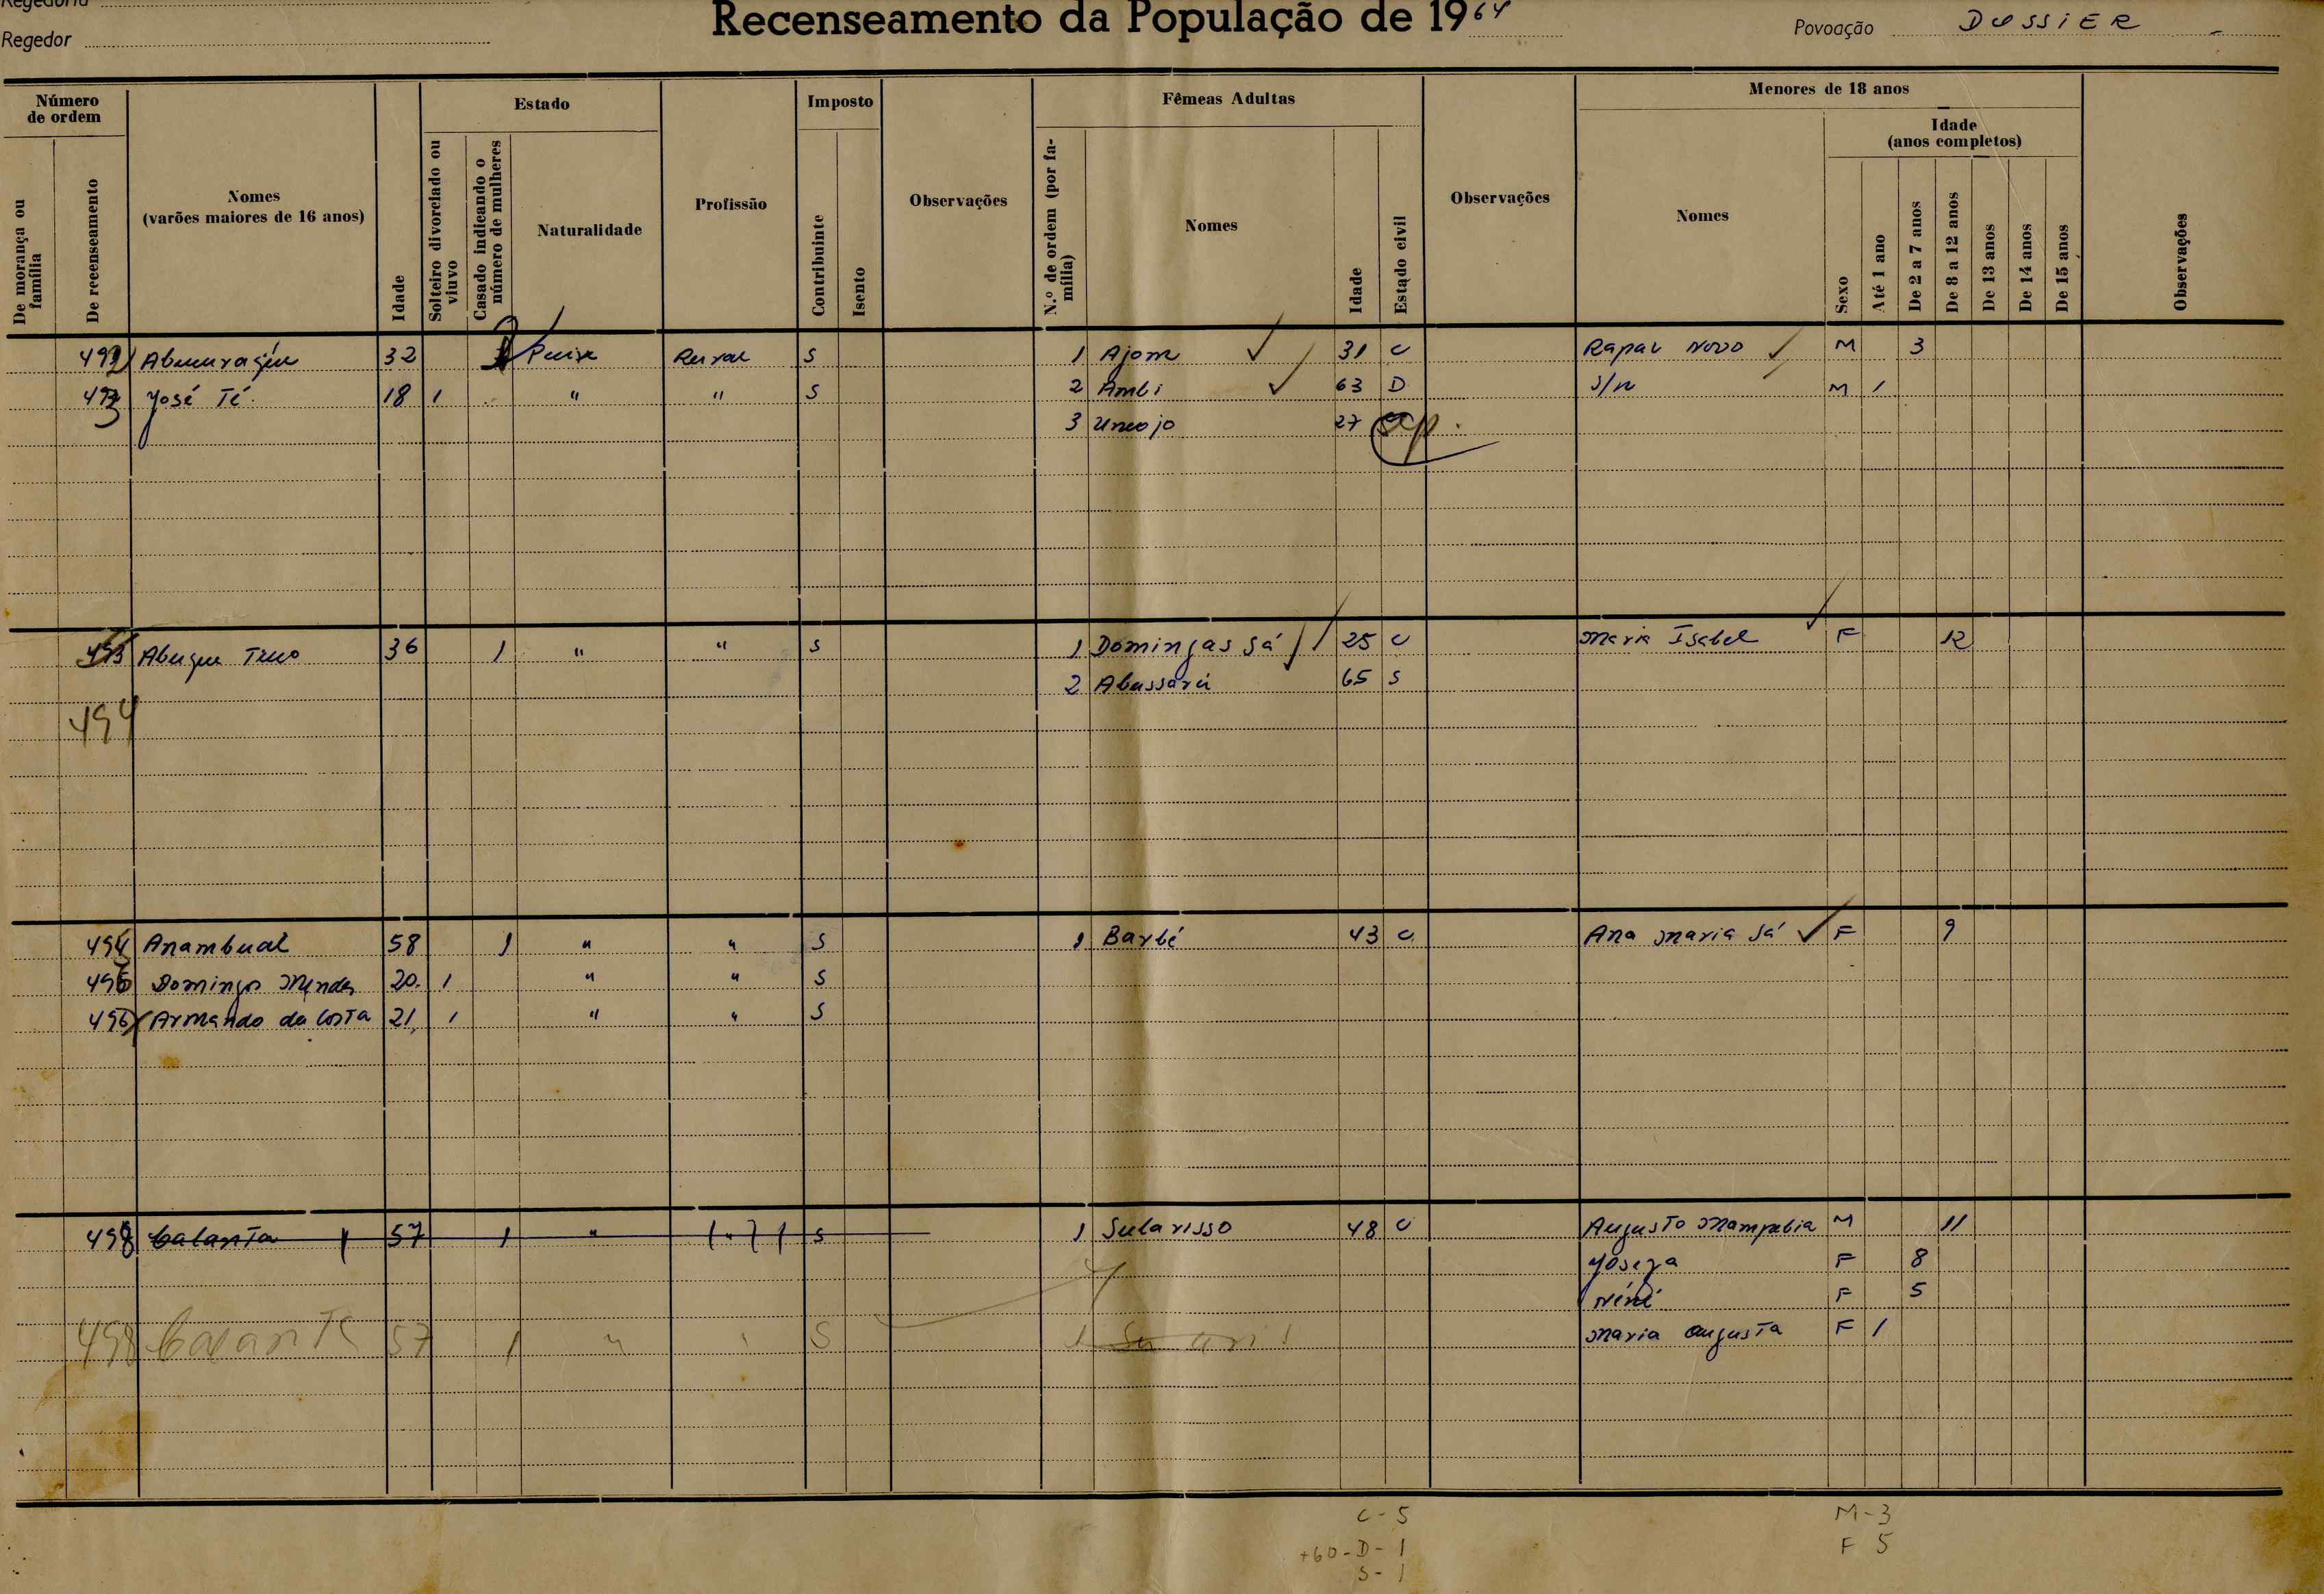 Regedoria
Regedor
Recenseamento da População de 1964
Povoação DUSSIER
Número de ordem
De morança ou família
De recenseamento
Nomes
(varões maiores de 16 anos)
Idade
Estado
Solteiro divorciado ou viuvo
Casado indicando o número de mulheres
Naturalidade
Profissão
Imposto
Contribuinte
Isento
Observações
Fêmeas Adultas
N.º de ordem (por família)
Nomes
Idade
Estado civil
Observações
Menores de 18 anos
Nomes
Sexo
Idade
(anos completos)
Até 1 ano
De 2 a 7 anos
De 8 a 12 anos
De 13 anos
De 14 anos
De 15 anos
Observações
492 32 Rural S 1 Ajom 31 C Rapaz Novo M 3
493 José Té 18 1 " " S 2 Ambi 63 D s/n M 1
3 27
36 1 " " S 1 Domingas Sá 25 C Maria Isabel F 12
2 65 S
494
Anambual 58 1 " " S 1 Barbé 43 C Ana Maria Sá F 9
496 Domingos Mendes 20 1 " " S
Armando da Costa 21 1 " " S
498 Calanta 57 1 " " S 1 Sularisso 48 C Augusto Mampabia M 11
Josefa F 8
Néné F 5
498 Calanta 57 1 " " S 1 Maria Augusta F 1
C - 5
+60 - D - 1
S - 1
M - 3
F 5